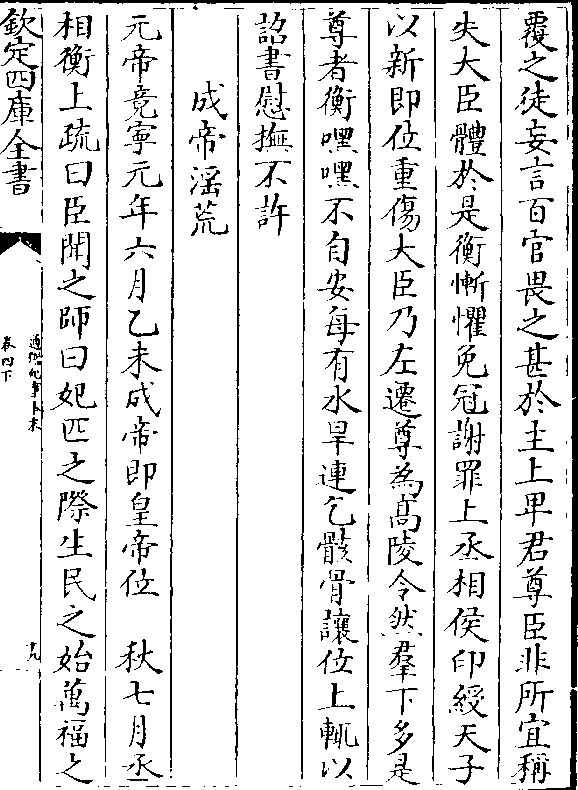 覆之徒妄言百官畏之甚於主上卑君尊臣非所宜稱
失大臣體於是衡慚懼免冠謝罪上丞相侯印綬天子
以新即位重傷大臣乃左遷尊為髙陵令然羣下多是
尊者衡嘿嘿不自安每有水旱連乞骸骨讓位上輒以
詔書慰撫不許
成帝滛荒
元帝竟寧元年六月乙未成帝即皇帝位 秋七月丞
相衡上疏曰臣聞之師曰妃匹之際生民之始萬福之
欽定四庫全書
通鑑紀事本末
卷四下
十九